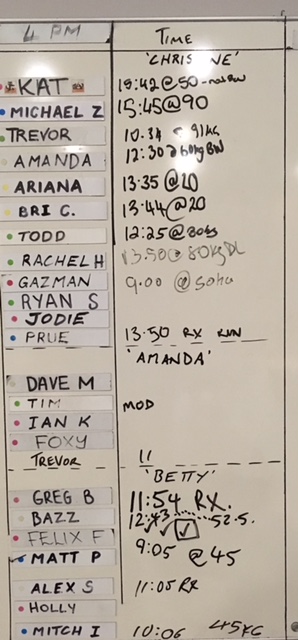 4 PM TIME
'CHRIS NE'
KAT 15:42@50
MICHAEL Z 15:45@90
TREVOR 10.34 91kg
AMANDA 12:30 @ 60kg BW
ARIANA 13:35 @20
BRI C. 13:44@20
TODD 12:25@80kg
RACHEL H 13.50@ 80KG DL
GAZMAN 9.00 @
RYAN S
JODIE
PRUE 13.50 RX RUN
'AMANDA'
DAVE M
TIM MOD
IAN K
FOXY
TREVOR 11
'BETTY'
GREG B 11:54 RX.
BAZZ 12:43 52.5.
FELIX F
MATT P 9:05 @45
ALEX S 11:05 RX
HOLLY
MITCH I 10:06 45KG